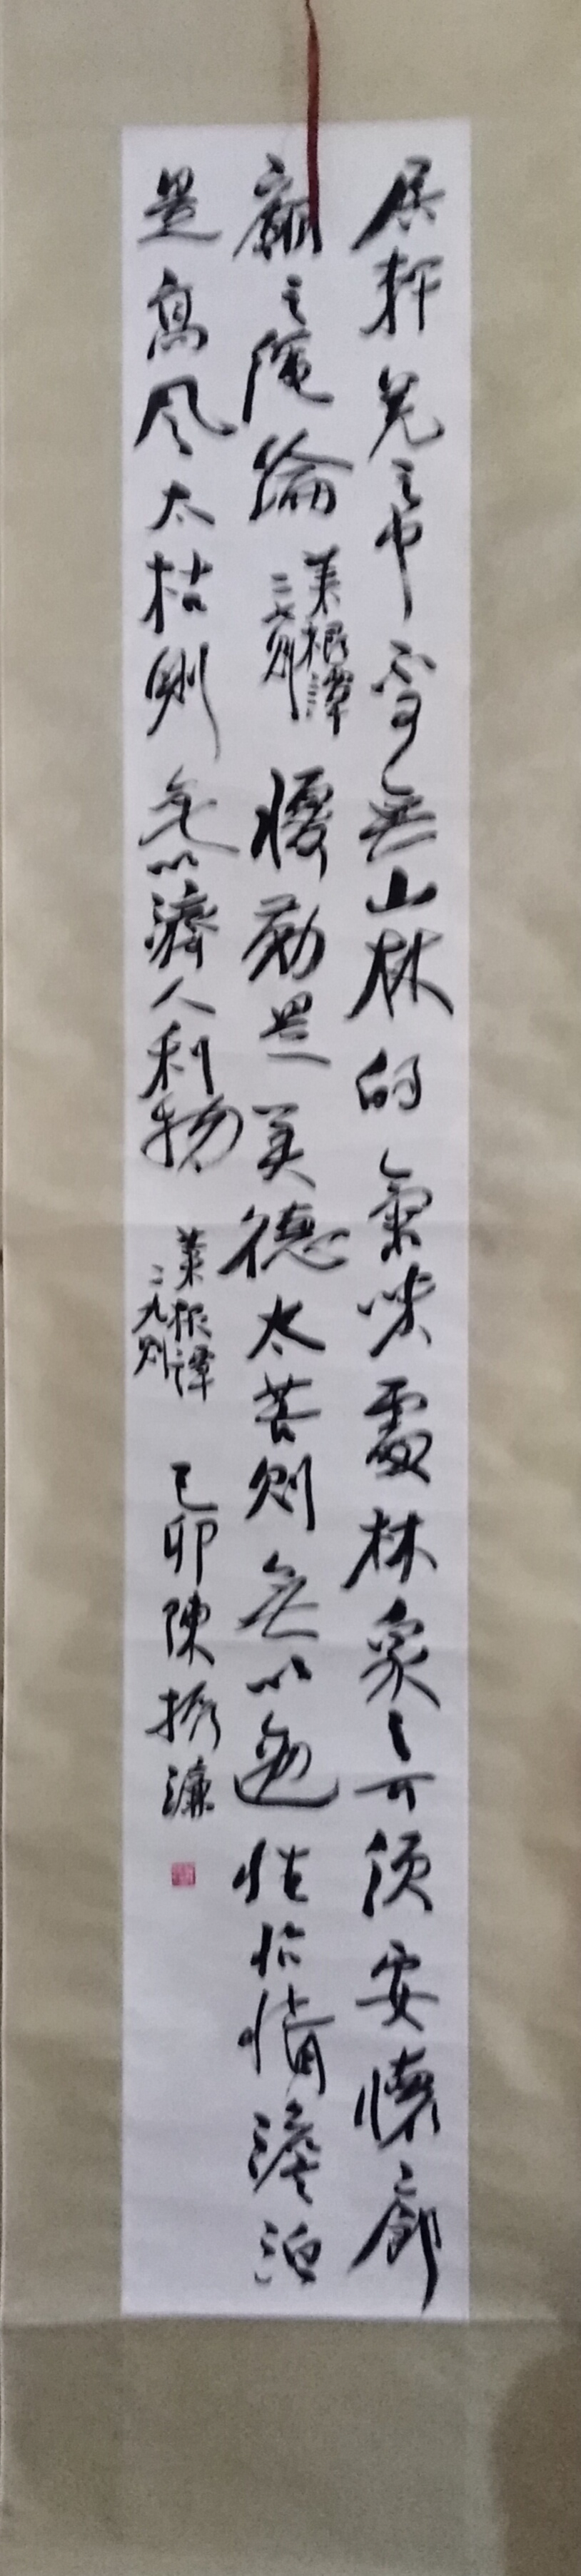 居軒冕之中不可無山林的氣味處林泉之下須要懷廊
廟之經綸
菜根譚
二七則
憂勤是美德太苦則無以適性怡情澹泊
是高風太枯則無以濟人利物
菜根譚
二九則
己卯陳振濂